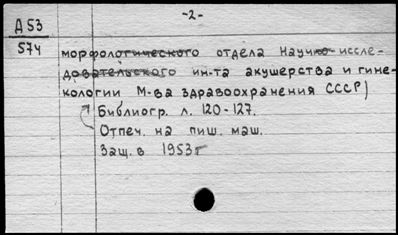 -2-
Д 53
574
морфологического отдела Научно-иссле-
довательского ин-та акушерства и гине-
кологии М-ва здравоохранения СССР)
Библиогр. л. 120-127.
Отпеч. на пиш. маш.
Защ. в 1953г